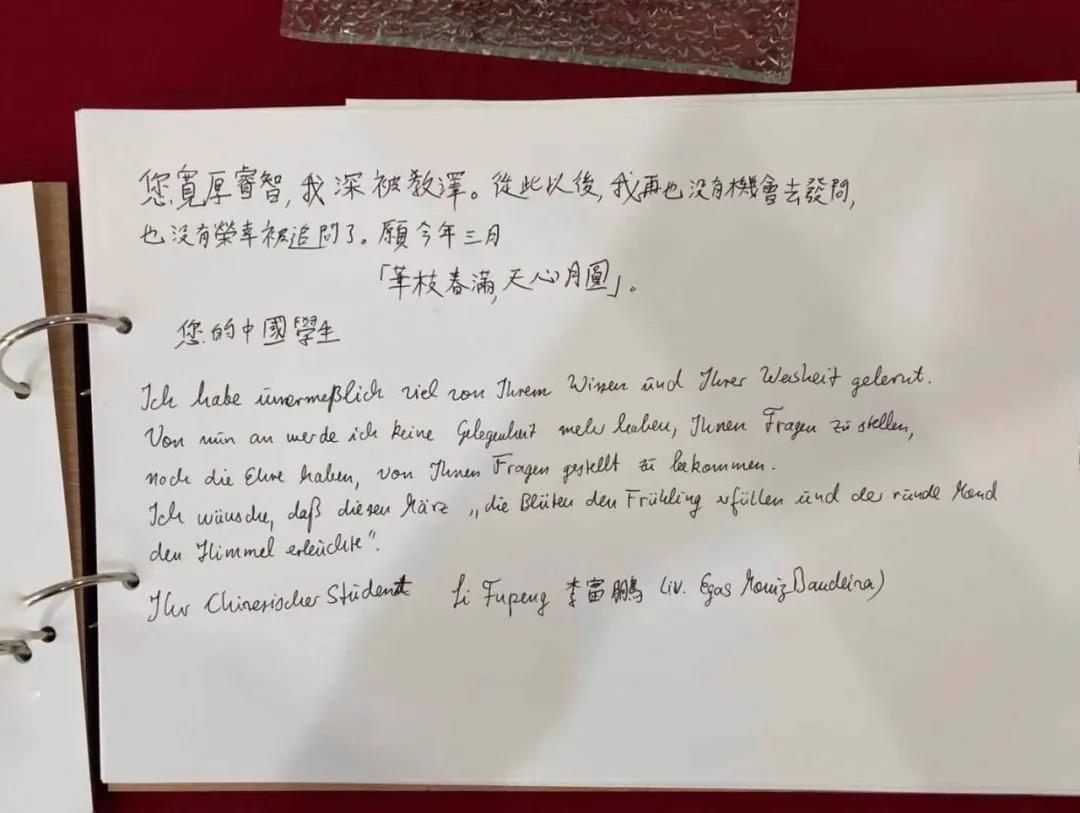 您寬厚睿智,我深被教澤。從此以後,我再也没有機會去發問,
也没有榮幸被追問了。願今年三月
「華枝春滿,天心月圓」。
您的中國學生
Ich habe unermeßlich viel von Ihrem Wissen und Ihrer Weisheit gelernt.
Von nun an werde ich keine Gelegenheit mehr haben, Ihnen Fragen zu stellen,
noch die Ehre haben, von Ihnen Fragen gestellt zu bekommen.
Ich wünsche, daß diesen März „die Blüten den Frühling erfüllen und der runde Mond
den Himmel erleuchte“.
Ihr Chinesischer Student Li Fupeng 李富鵬 (iv. Egas Moniz Bandeira)